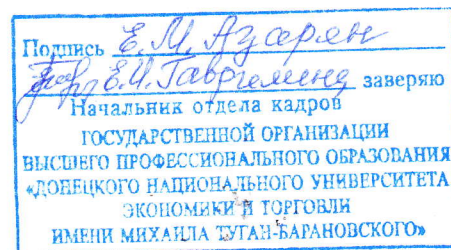 Подпись Е.М. Азарян
Е.И. заверяю
Начальник отдела кадров
ГОСУДАРСТВЕННОЙ ОРГАНИЗАЦИИ
ВЫСШЕГО ПРОФЕССИОНАЛЬНОГО ОБРАЗОВАНИЯ
«ДОНЕЦКОГО НАЦИОНАЛЬНОГО УНИВЕРСИТЕТА
ЭКОНОМИКИ И ТОРГОВЛИ
ИМЕНИ МИХАИЛА ТУГАН-БАРАНОВСКОГО»